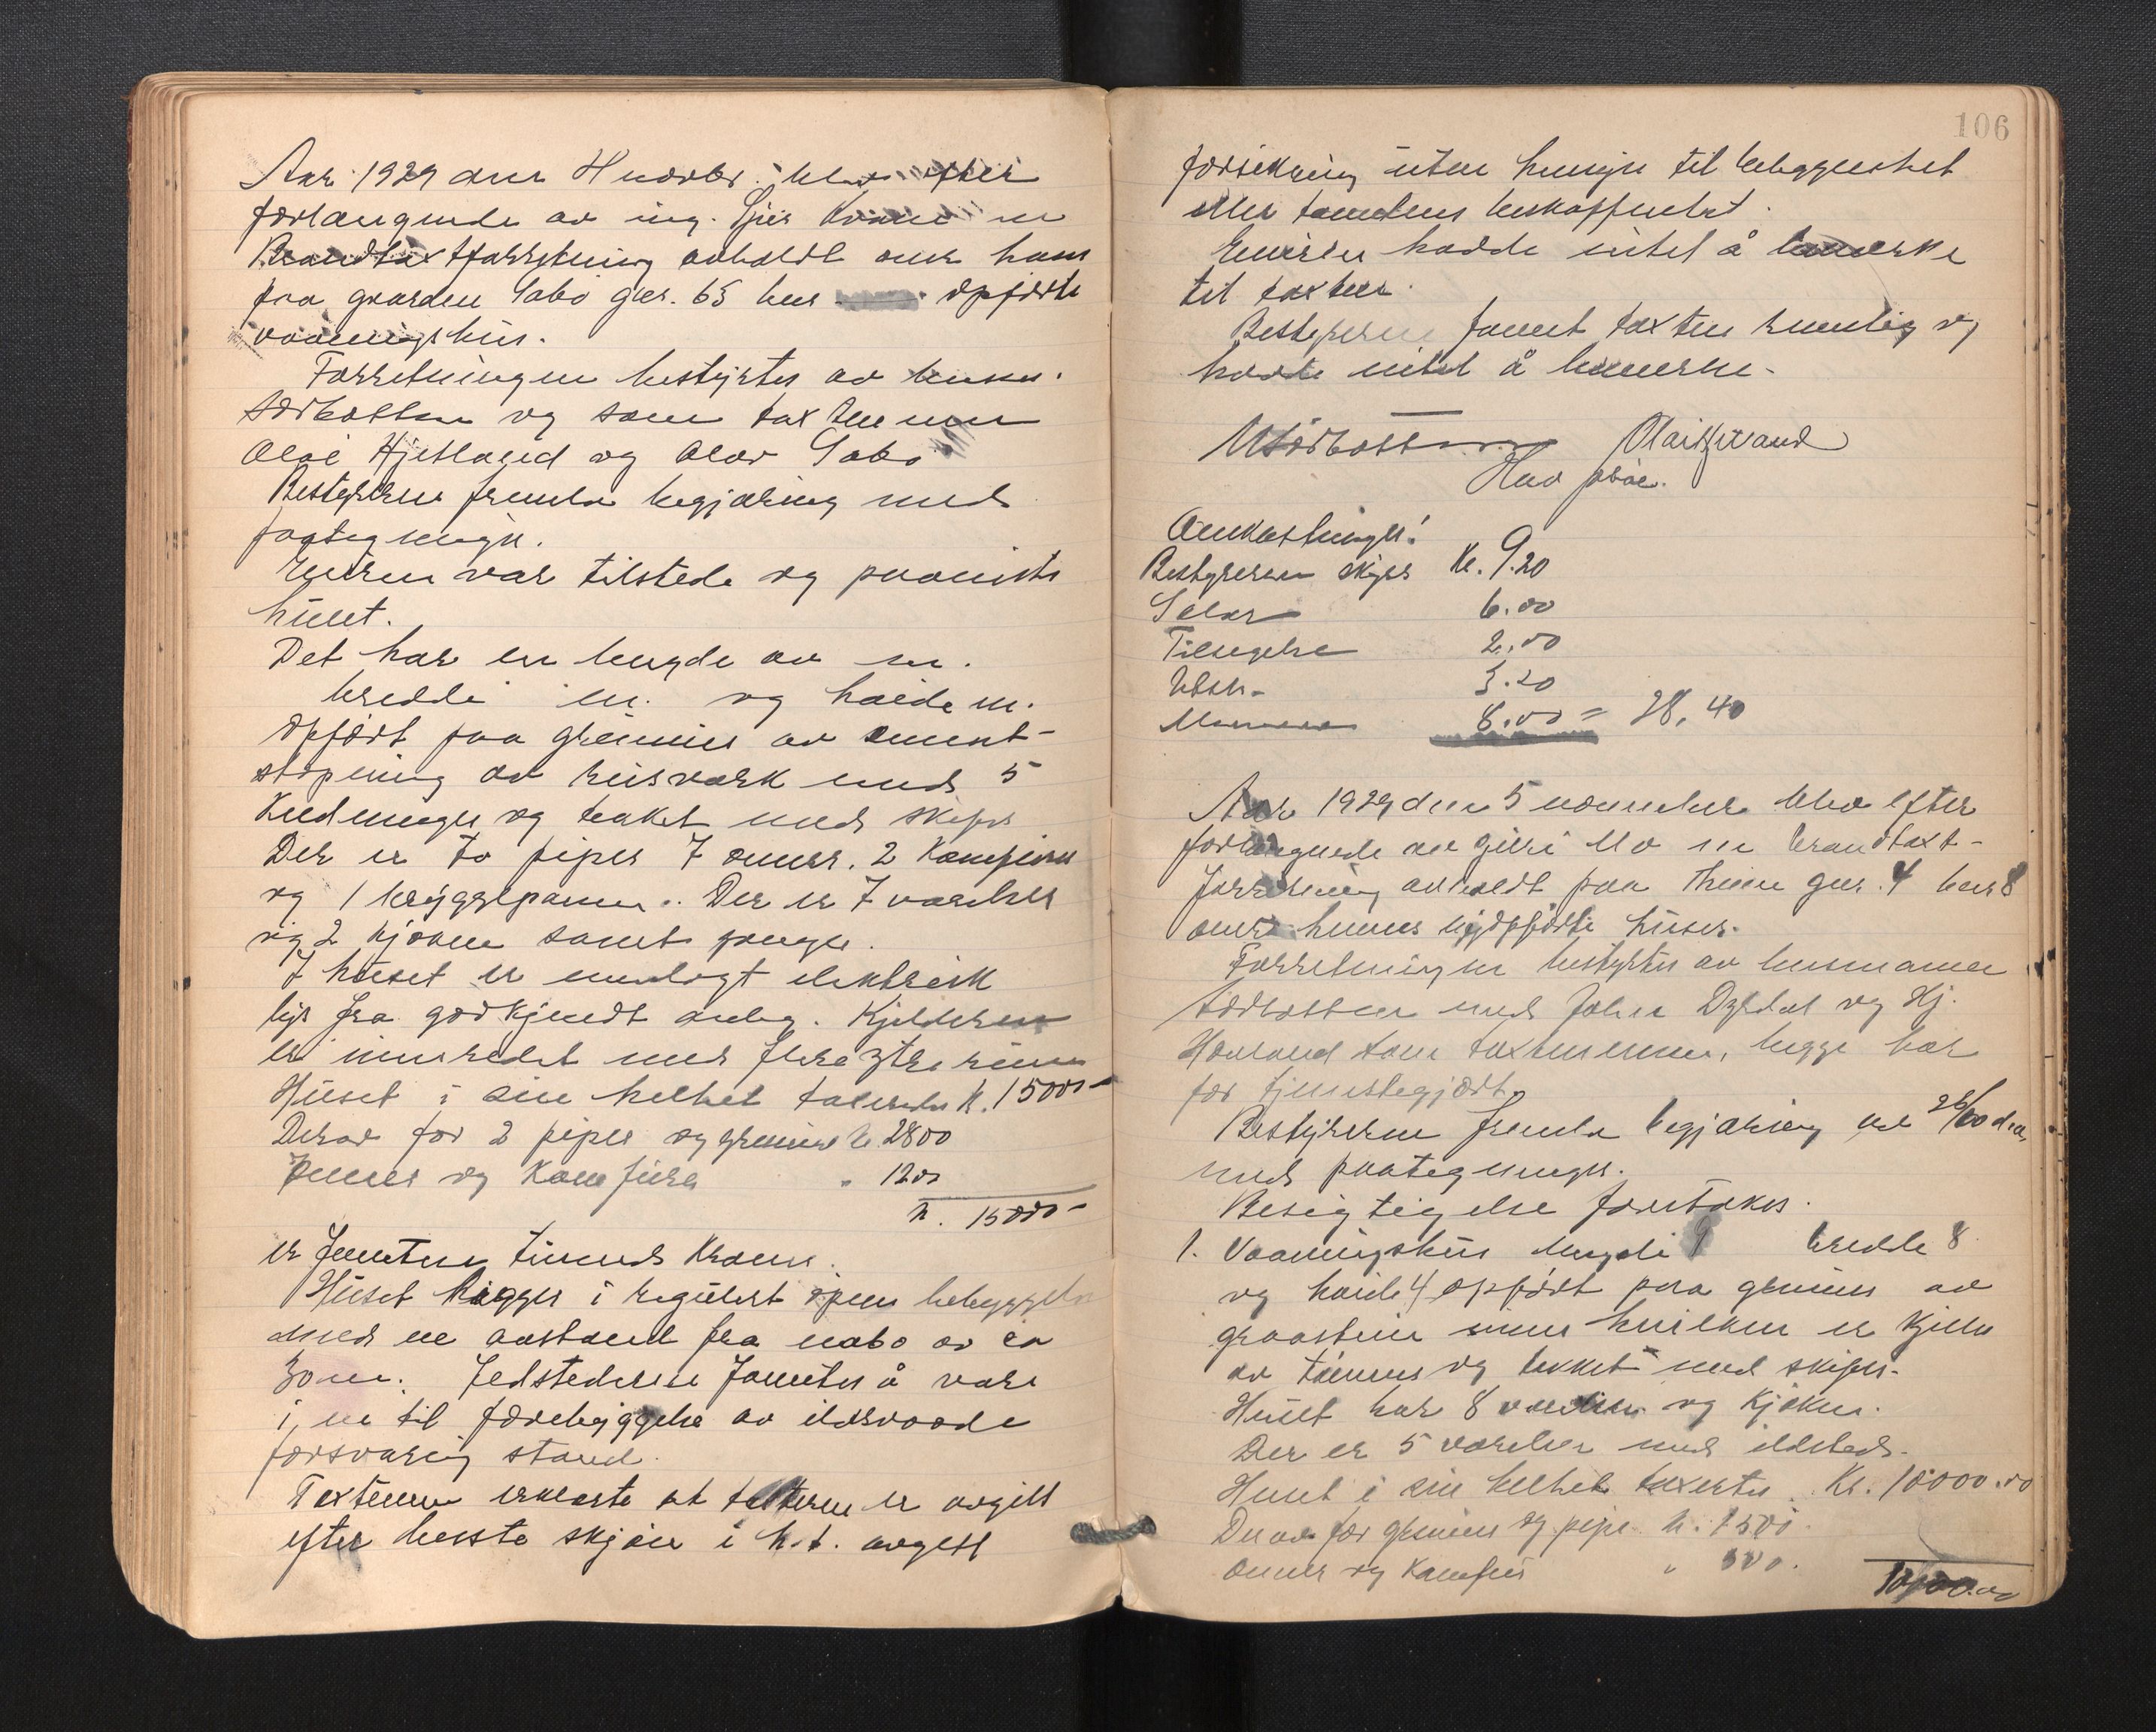 Aar 1929 den 4 novbr. blev efter
forlangende av ing. en
Brandtaxtforretning avholdt over hans
paa gaarden Sabö gnr. 65 bnr opførte
vaaningshus.
Forretningen bestyrtes av lensm.
Sørbotten og som taxtmenn
Hjetland og Olav Sabö
Bestyreren fremla begjæring med
paategninger.
Eieren var tilstede og paaviste
huset.
Det har en lengde av m.
bredde m. og høide m.
opført paa grunmur av cement-
støpning av reisverk med 5
Kledninger og tækket med skifer
Der er to piper 7 ovner. 2 Komfirer
og 1 bryggepanne. Der er 7 værelser
og 2 kjøkken samt ganger.
I huset er innlagt elektrisk
lys fra godkjendt anleg. Kjelderen
er innredet med flere ytre rum
Huset i sin helhet taxeredes k. 15000-
Derav for 2 piper og grunmur k. 2800
Ovner og Komfirer " 1200
k. 15000-
er femten tusend Kroner.
Huset ligger i regulert open bebyggelse
med en avstand fra nabo av ca
30 m. Ildstederne fantes å være
i en til forebyggelse av ildsvaade
forsvarlig stand.
Taxtmenn erklærte at taxten er avgitt
efter beste skjøn i h.t. avgitt
106
forsikring uten hensyn til beliggenhet
eller tomtens beskaffenhet.
Eieren hadde intet å bemerke
til taxten.
Bestyreren fannt taxten rimelig og
hadde intet å bemerke.
MSørbotten Olai Hjetland
Olav Sabø.
Omkostninger:
Bestyreren skyss Kr. 9.20
Salar 6.00
Tilsigelse 2.00
Utsk. 3.20
Mennene 8.00 = 28,40
Aar 1929 den 5 november blev efter
forlangende av Mo en brandtaxt-
forretning avholdt paa gnr. 4 bnr 8
over hennes nyopførte huser.
Forretningen bestyrtes av lensmann
Sørbotten med Johan Dyrdal og Hj.
Hovland som taxtmenn, begge har
før tjenestegjort.
Bestyreren fremla begjæring av 26/10 d.a.
med paategninger.
Besigtigelse foretokes.
1. Vaaningshus lengde 9 bredde 8
og høide 4 opført paa grunmur av
graastein under hvilken er kjeller
av tømmer og tækket med skifer.
Huset har 8 værelser og kjøken.
Der er 5 værelser med ildsted.
Huset i sin helhet taxertes Kr. 10000.00
Derav for grunmur og pipe k. 1500.
Ovner og Komfur " 500.
10000.00